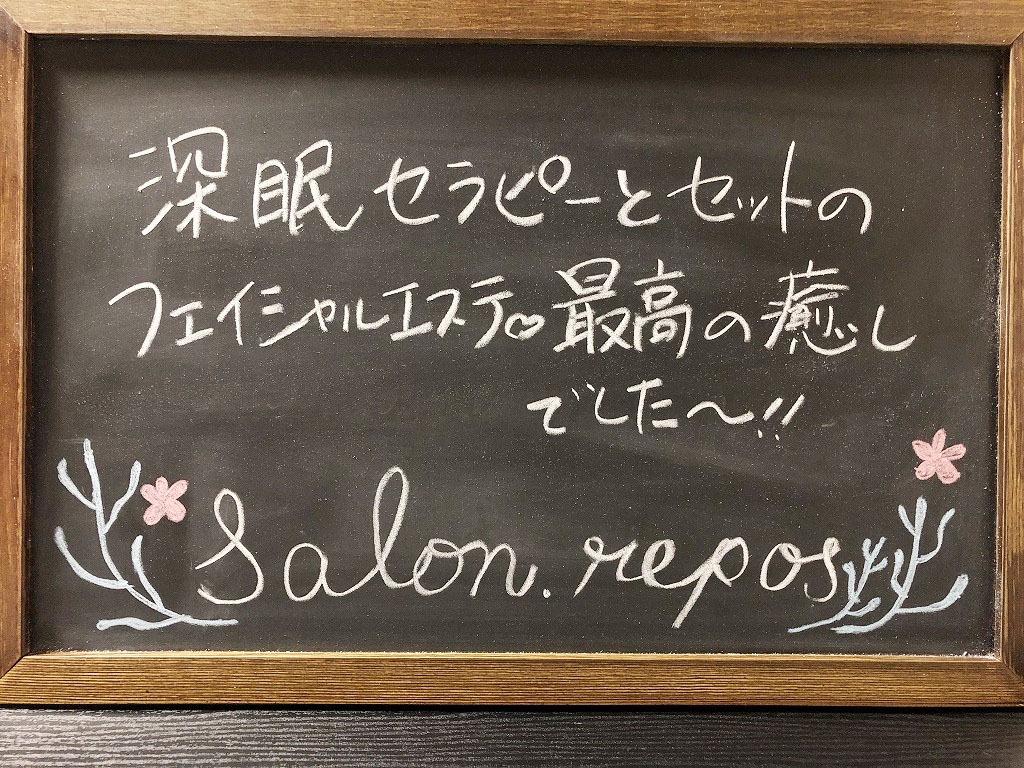 深眠セラピーとセットの
フェイシャルエステ♡最高の癒し
でした〜!!
Salon.repos